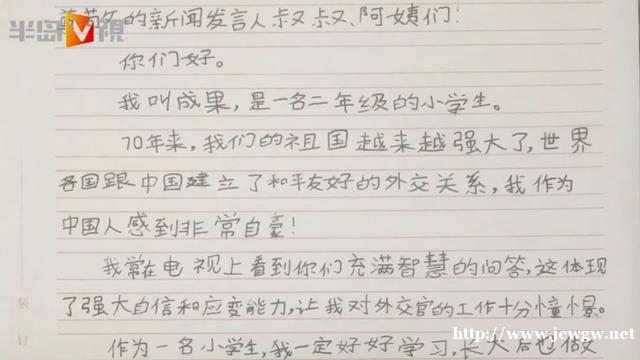 半岛V视
尊敬的新闻发言人叔叔、阿姨们!
你们好。
我叫成果,是一名二年级的小学生。
70年来,我们的祖国越来越强大了,世界
各国跟中国建立了和平友好的外交关系,我作为
中国人感到非常自豪!
我常在电视上看到你们充满智慧的问答,这体现
了强大自信和应变能力,让我对外交官的工作十分憧憬。
作为一名小学生,我一定好好学习,长大后也做
装
订
http://www.jcwgw.net